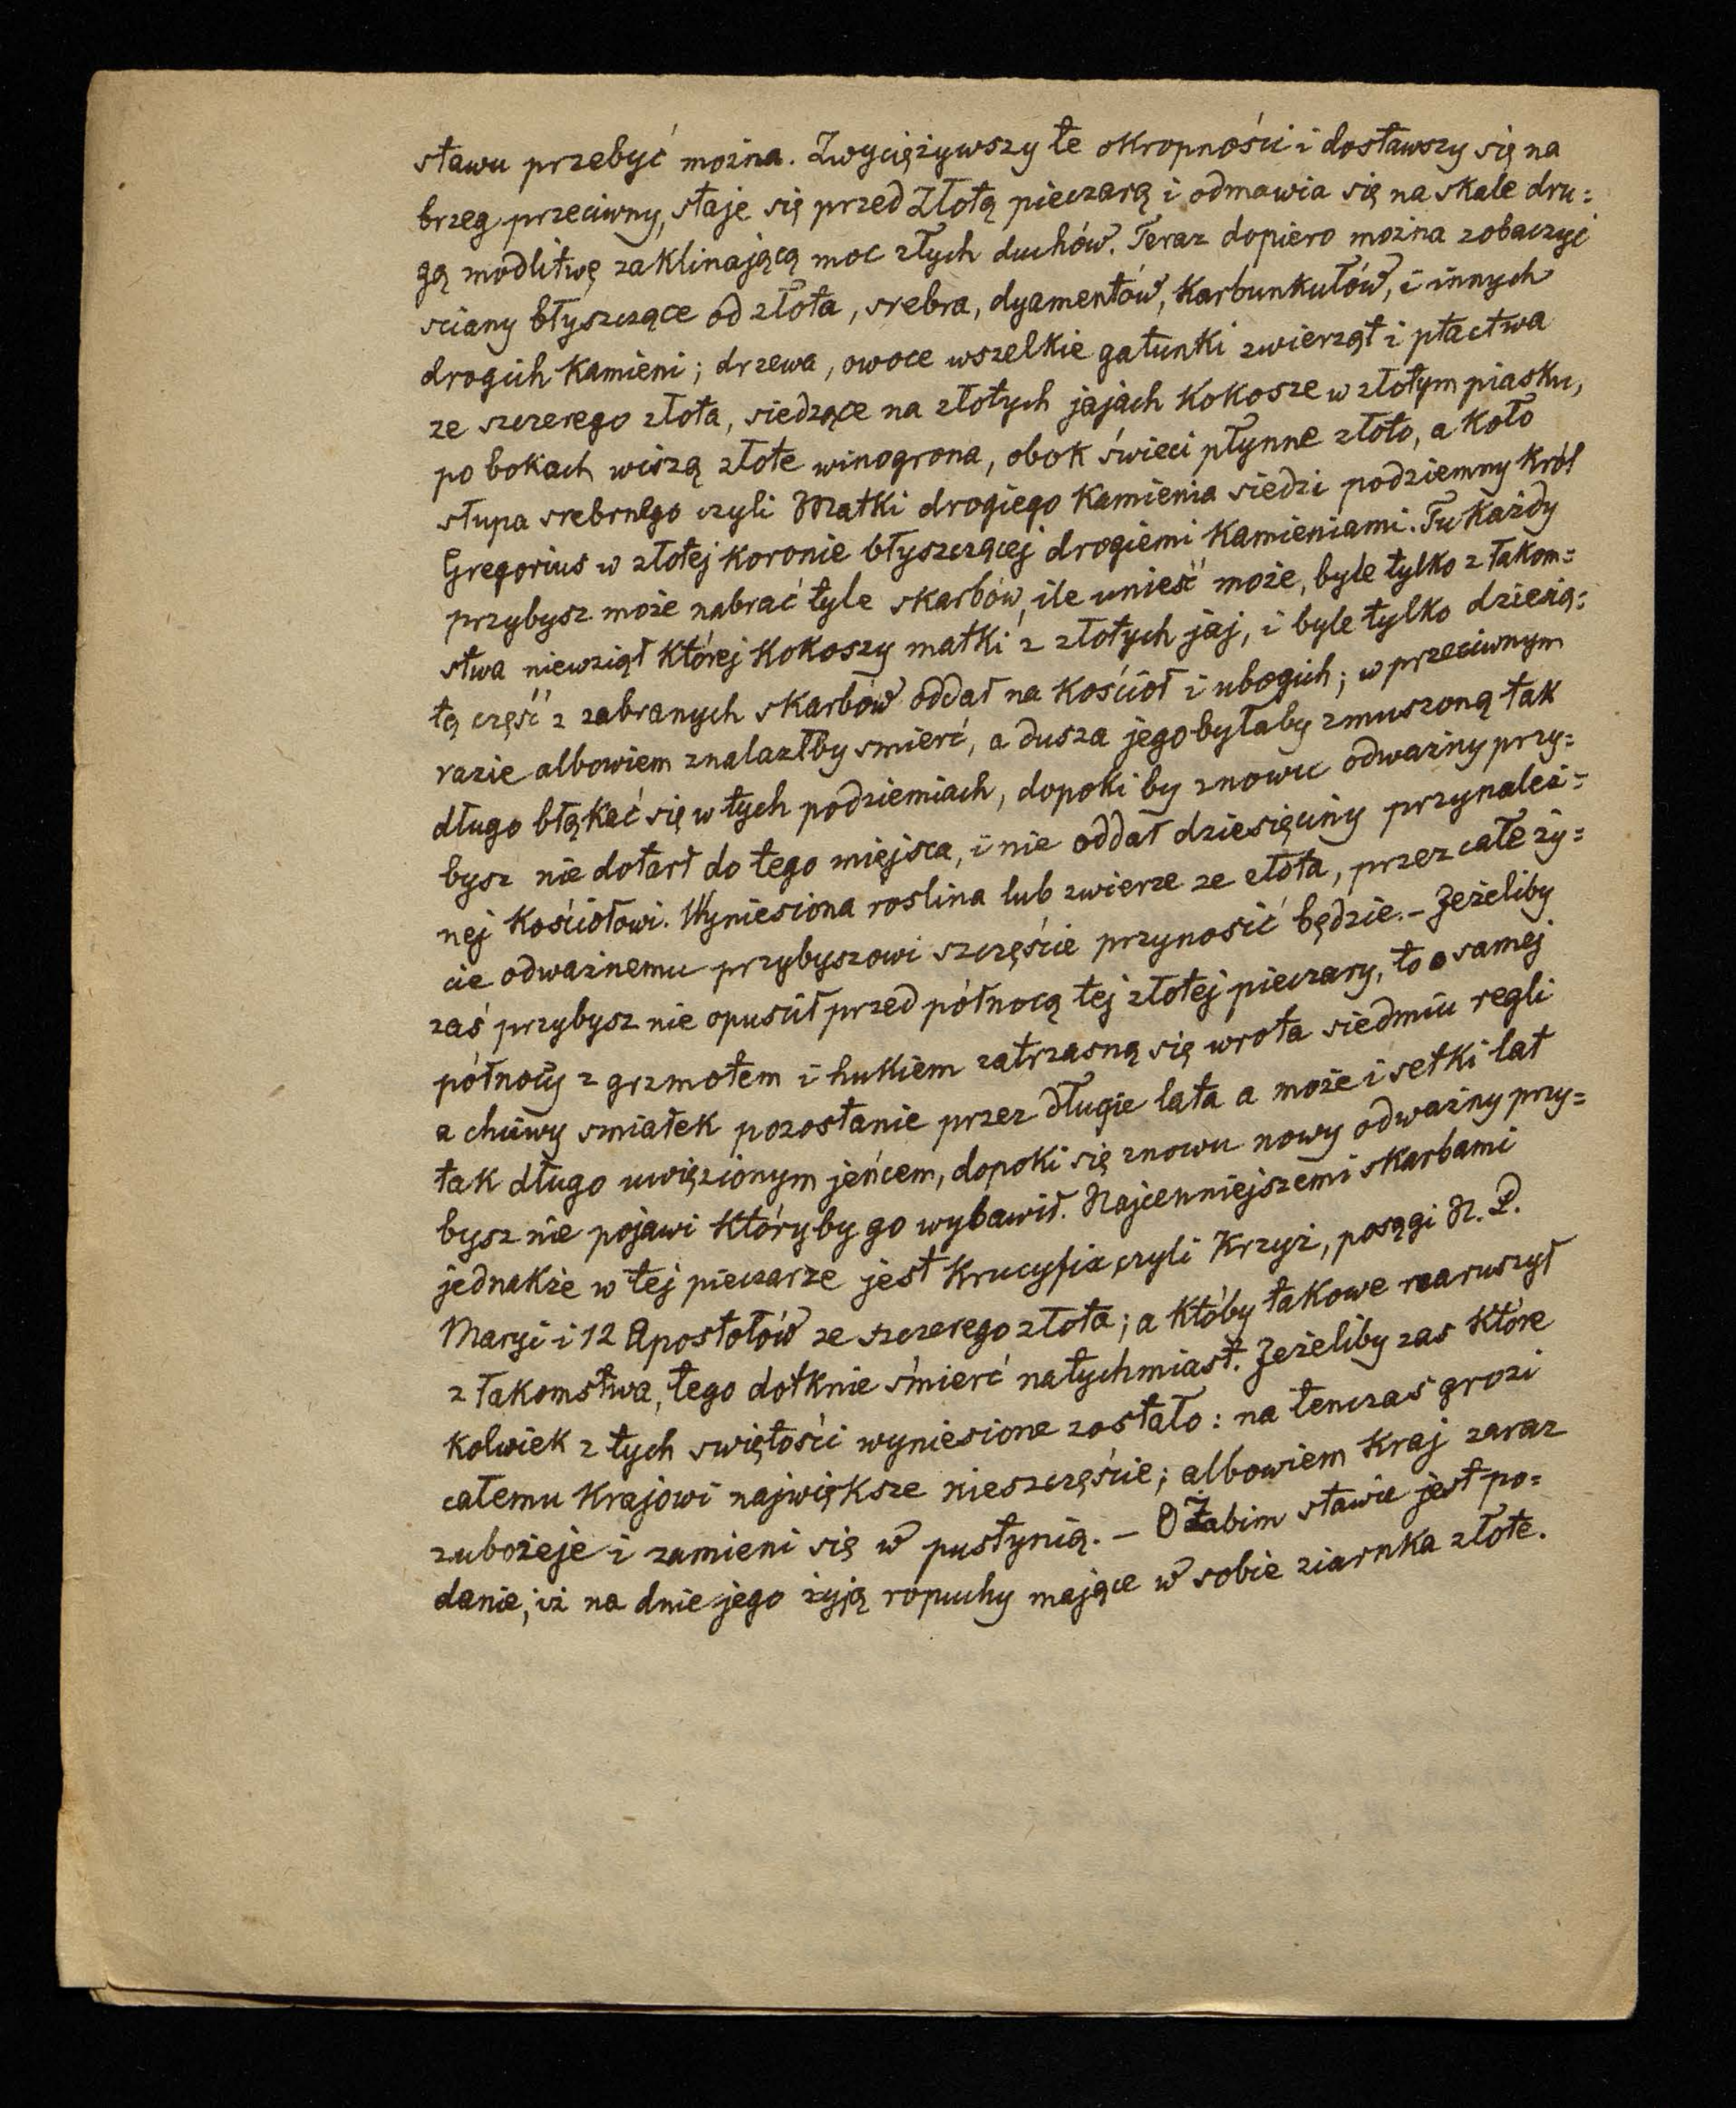 stawu przebyć można. Zwyciężywszy te okropności i dostawszy się na
brzeg przeciwny, staje się przed Złotą pieczarą i odmawia się na skale dru=
gą modlitwę zaklinającą moc złych duchów. Teraz dopiero można zobaczyć
sciany błyszczące od złota, srebra, dyamentów, karbunkułów, i innych
drogich kamieni; drzewa, owoce wszelkie gatunki zwierząt i ptactwa
ze szczerego złota, siedzące na złotych jajach kokosze w złotym piasku,
po bokach wiszą złote winogrona, obok świeci płynne złoto, a koło
słupa srebrnego czyli Matki drogiego kamienia siedzi podziemny król
Gregorius w złotej koronie błyszczącej drogiemi kamieniami. Tu każdy
przybysz może nabrać tyle skarbów, ile unieść może, byle tylko z łakom=
stwa niewziął której kokoszy matki z złotych jaj, i byle tylko dziesią=
tą część z zabranych skarbów oddał na kościoł i ubogich; w przeciwnym
razie albowiem znalazłby smierć, a dusza jego byłaby zmuszoną tak
długo błąkać się w tych podziemiach, dopoki by znowu odważny przy=
bysz nie dotarł do tego miejsca, i nie oddał dziesięciny przynależ=
nej kościołowi. Wyniesiona roslina lub zwierze ze złota, przez całe ży=
cie odważnemu przybyszowi szczęście przynosić będzie. – Jeżeliby
zaś przybysz nie opuscił przed północą tej złotej pieczary, to o samej
północy z grzmotem i hukiem zatrzasną się wrota siedmiu regli
a chciwy smiałek pozostanie przez długie lata a może i setki lat
tak długo uwięzionym jeńcem, dopoki się znowu nowy odważny przy=
bysz nie pojawi któryby go wybawił. Najcenniejszemi skarbami
jednakże w tej pieczarze jest Krucyfix czyli Krzyż, posągi N. P.
Maryi i 12 Apostołów ze szczerego złota; a któby takowe naruszył
z łakomstwa, tego dotknie śmierć natychmiast. Jeżeliby zas które
kolwiek z tych swiętości wyniesione zostało: na tenczas grozi
całemu krajowi największe nieszczęście; albowiem kraj zaraz
zubożeje i zamieni się w pustynią. – O Żabim stawie jest po=
danie, iż na dnie jego żyją ropuchy mające w sobie ziarnka złote.